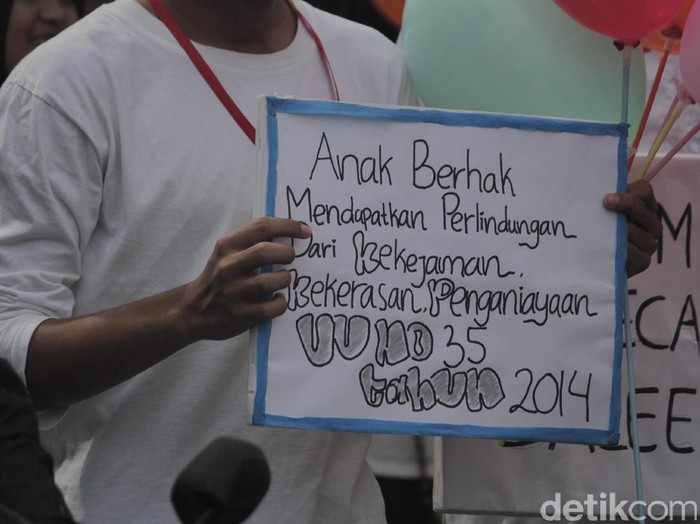 Anak Berhak
Mendapatkan Perlindungan
Dari Kekejaman,
Kekerasan, Penganiayaan
UU NO 35
tahun 2014
detikcom